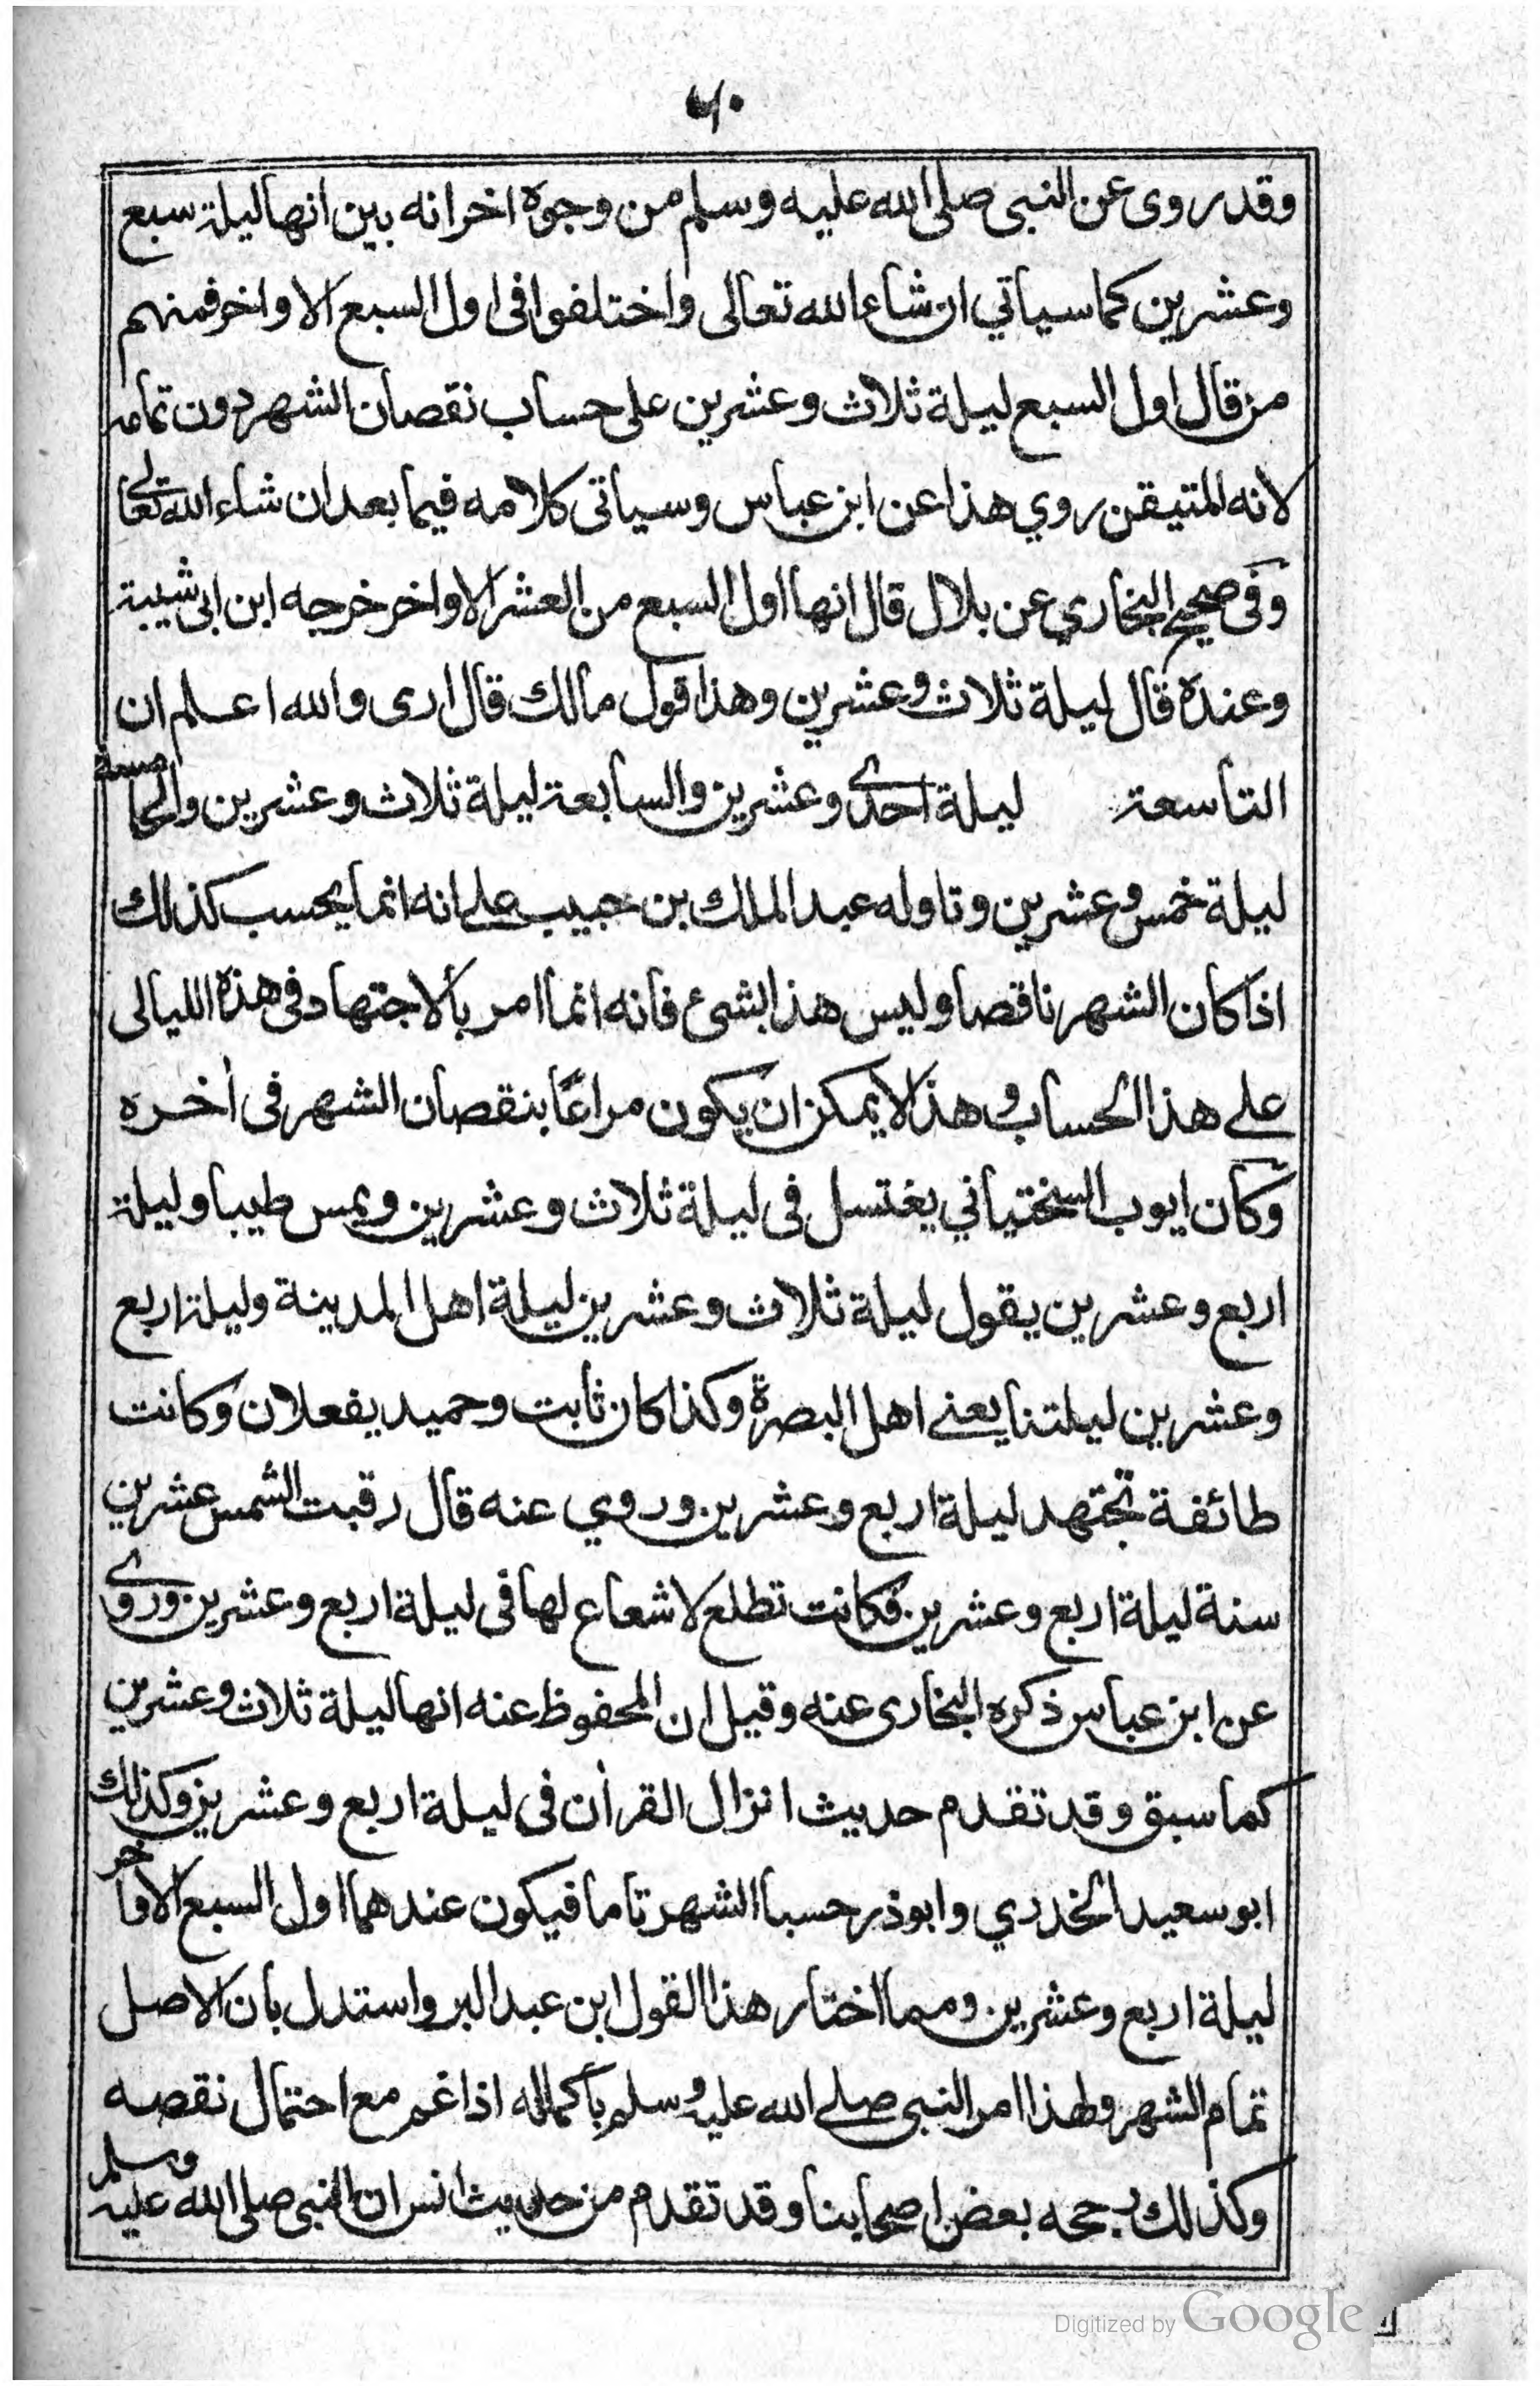 ٦٠
وقد روى عن النبى صلى الله عليه وسلم من وجوه اخر انه بين انها ليلة سبع
وعشرين كما سياتي ان شاء الله تعالى واختلفوا فى اول السبع الاواخر فمنهم
من قال اول السبع ليلة ثلاث وعشرين على حساب نقصان الشهر دون تمامه
لانه المتيقن روي هذا عن ابن عباس وسياتى كلامه فيما بعد ان شاء الله تعالى
وفى صحيح البخاري عن بلال قال انها اول السبع من العشر الاواخر خرجه ابن ابى شيبة
وعنده قال ليلة ثلاث وعشرين وهذا قول مالك قال ارى والله اعلم ان
التاسعة ليلة احدى وعشرين والسابعة ليلة ثلاث وعشرين والخامسة
ليلة خمس وعشرين وتاوله عبد الملك بن حبيب على انه انما يحسب كذلك
اذا كان الشهر ناقصا وليس هذا بشئ فانه انما امر بالاجتهاد فى هذه الليالى
على هذا الحساب وهذا لا يمكن ان يكون مراعًا بنقصان الشهر فى أخره
وكان ايوب السختياني يغتسل فى ليلة ثلاث وعشرين ويمس طيبا وليلة
اربع وعشرين يقول ليلة ثلاث وعشرين ليلة اهل المدينة وليلة اربع
وعشرين ليلتنا يعنى اهل البصرة وكذا كان ثابت وحميد يفعلان وكانت
طائفة تجتهد ليلة اربع وعشرين وروي عنه قال رقبت الشمس عشرين
سنة ليلة اربع وعشرين فكانت تطلع لا شعاع لها فى ليلة اربع وعشرين وروى
عن ابن عباس ذكره البخارى عنه وقيل ان المحفوظ عنه انها ليلة ثلاث وعشرين
كما سبق وقد تقدم حديث انزال القرأن فى ليلة اربع وعشرين وكذلك
ابو سعيد الخدري وابوذر حسبا الشهر تاما فيكون عندهما اول السبع الاواخر
ليلة اربع وعشرين ومما اختار هذا القول ابن عبد البر واستدل بان الاصل
تمام الشهر ولهذا امر النبى صلى الله عليه وسلم باكماله اذا غم مع احتمال نقصه
وكذلك رجحه بعض اصحابنا وقد تقدم من حديث انس ان النبى صلى الله عليه وسلم
Digitized by Google